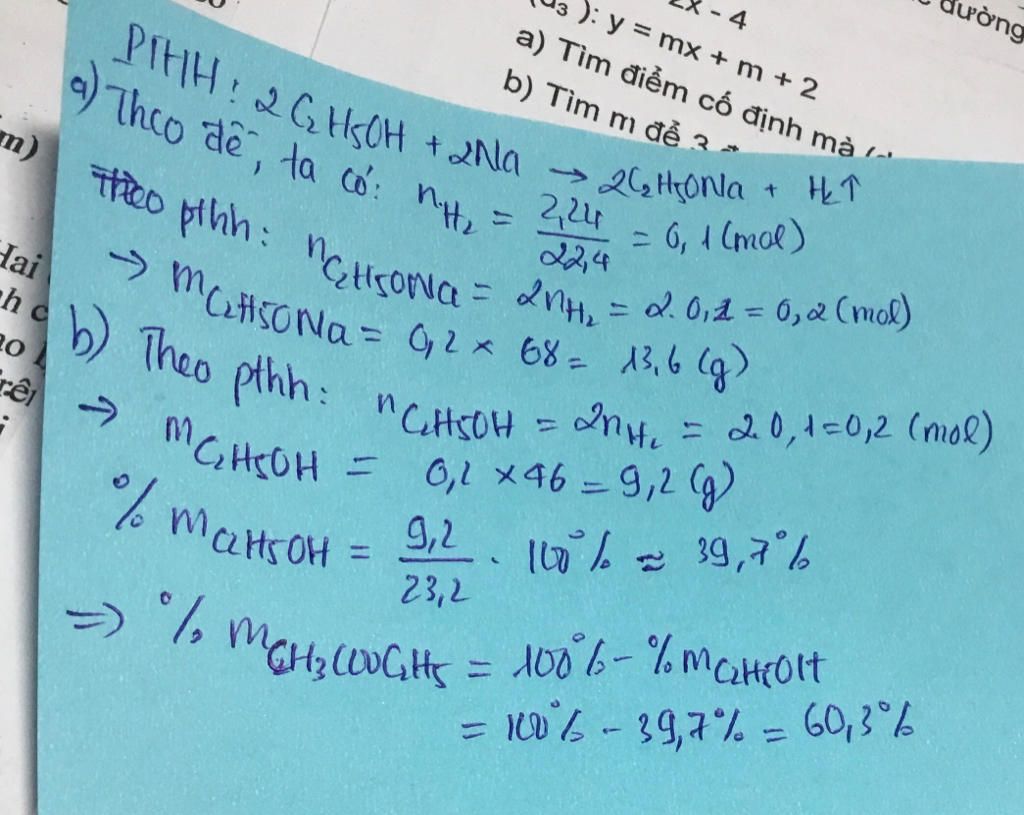 2x - 4
(d₃): y = mx + m + 2
a) Tìm điểm cố định mà
b) Tìm m để 3
đường
m)
PTHH: 2C₂H5OH + 2Na → 2C₂H5ONa + H₂↑
a) Theo đề, ta có: nH₂ = 2,24/22,4 = 0,1 (mol)
Theo pthh: nC₂H5ONa = 2nH₂ = 2.0,1 = 0,2 (mol)
→ mC₂H5ONa = 0,2 × 68 = 13,6 (g)
b) Theo pthh: nC₂H5OH = 2nH₂ = 2.0,1=0,2 (mol)
→ mC₂H5OH = 0,2 × 46 = 9,2 (g)
% mC₂H5OH = 9,2/23,2 . 100% ≈ 39,7%
=> % mCH3COOC₂H5 = 100% - % mC₂H5OH
= 100% - 39,7% = 60,3%